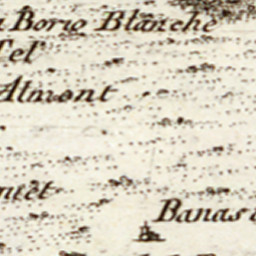 Borio Blanche
Tel
Almont
ntet
Banas